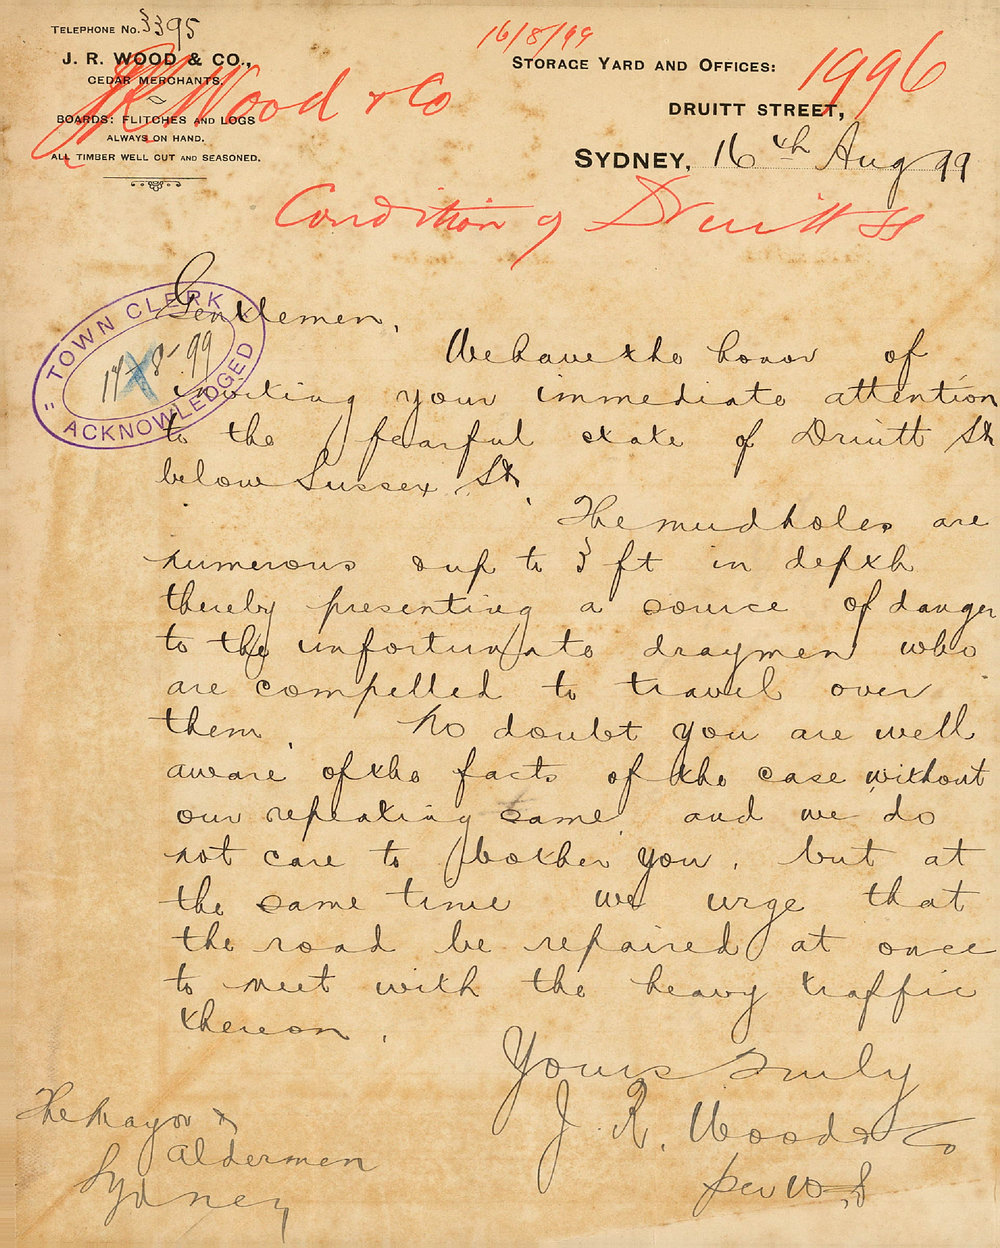 TELEPHONE No. 3395
J. R. WOOD & CO.,
CEDAR MERCHANTS.
BOARDS: FLITCHES AND LOGS
ALWAYS ON HAND.
ALL TIMBER WELL CUT AND SEASONED.
JR Wood & Co
16/8/99
STORAGE YARD AND OFFICES:
1996
DRUITT STREET,
SYDNEY, 16th Aug 99
Condition of Druitt St
TOWN CLERK
17-8-99
ACKNOWLEDGED
Gentlemen,
We have the honor of
inviting your immediate attention
to the fearful state of Druitt St
below Sussex St.
The mudholes are
numerous & up to 3 ft in depth
thereby presenting a source of danger
to the unfortunate draymen who
are compelled to travel over
them. No doubt you are well
aware of the facts of the case without
our repeating same, and we do
not care to bother you, but at
the same time we urge that
the road be repaired at once
to meet with the heavy traffic
thereon.
Yours truly
J. R. Wood & Co
per
The Mayor &
Aldermen
Sydney